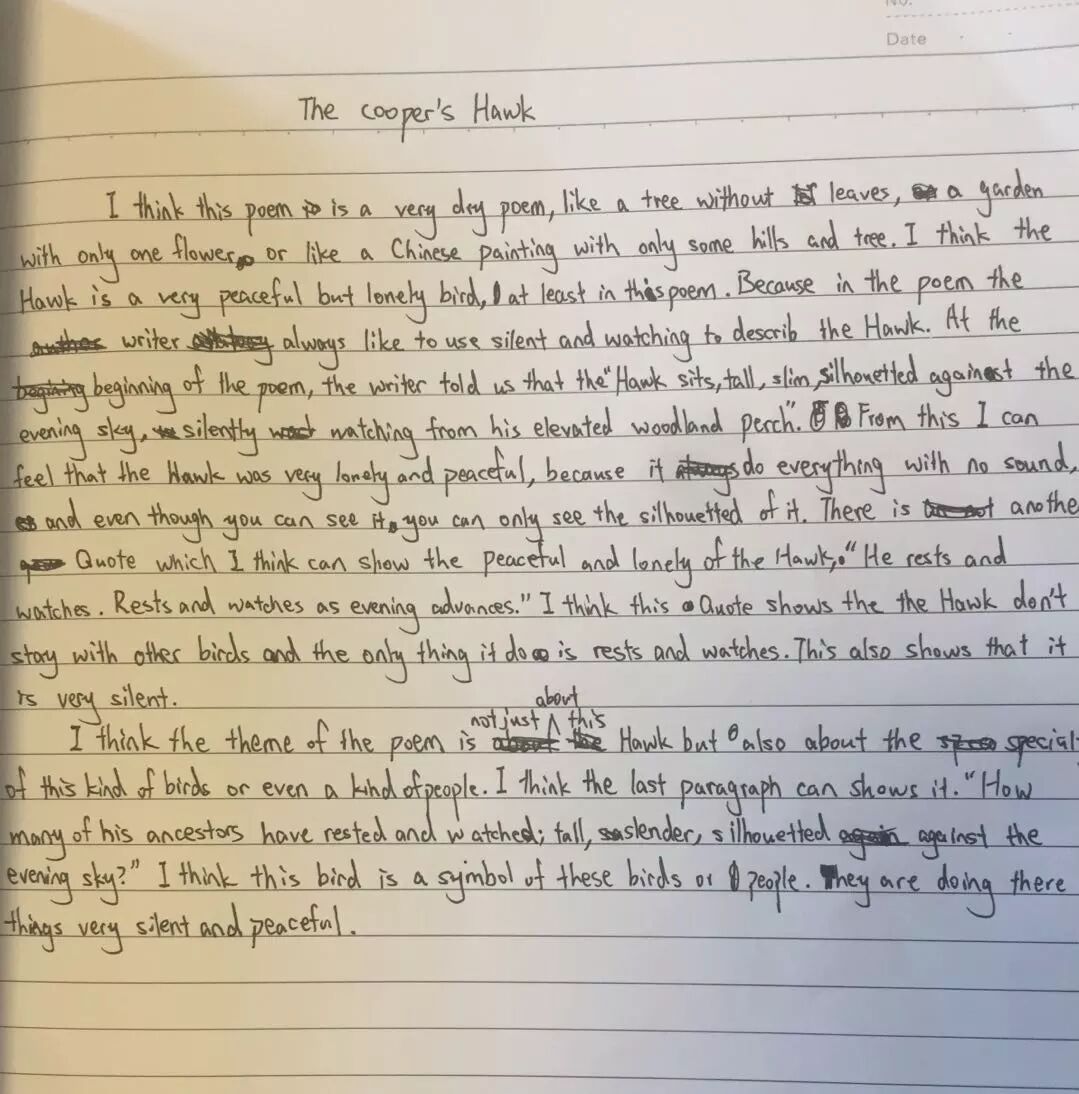 No.
Date
The cooper's Hawk
I think this poem is a very dry poem, like a tree without leaves, a garden
with only one flower, or like a Chinese painting with only some hills and tree. I think the
Hawk is a very peaceful but lonely bird, at least in this poem. Because in the poem the
writer always like to use silent and watching to describ the Hawk. At the
beginning of the poem, the writer told us that the "Hawk sits, tall, slim, silhouetted against the
evening sky, silently watching from his elevated woodland perch". From this I can
feel that the Hawk was very lonely and peaceful, because it do everything with no sound,
and even though you can see it, you can only see the silhouetted of it. There is anothe
Quote which I think can show the peaceful and lonely of the Hawk, "He rests and
watches. Rests and watches as evening advances." I think this Quote shows the the Hawk don't
stay with other birds and the only thing it do is rests and watches. This also shows that it
is very silent.
I think the theme of the poem is not just about this Hawk but also about the special
of this kind of birds or even a kind of people. I think the last paragraph can shows it. "How
many of his ancestors have rested and watched; tall, slender, silhouetted against the
evening sky?" I think this bird is a symbol of these birds or people. They are doing there
things very silent and peaceful.